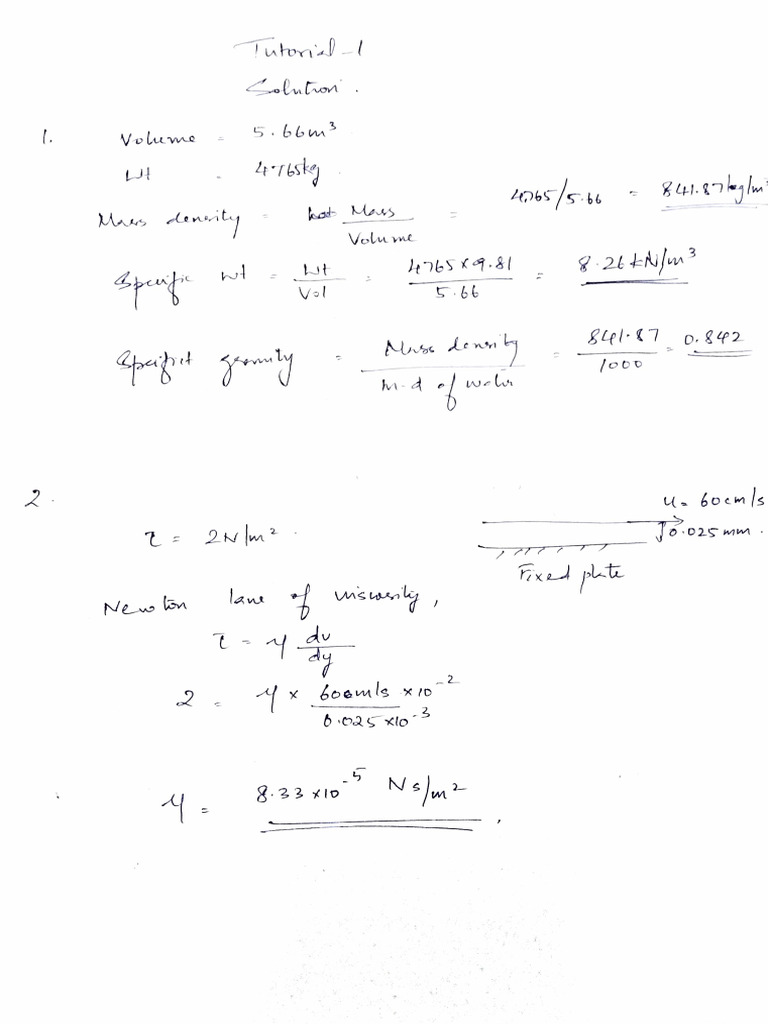 Tutorial-1
Solution.
1. Volume = 5.66m³
Wt = 4765kg
Mass density = Mass / Volume = 4765/5.66 = 841.87kg/m³
Specific wt = Wt / Vol = 4765×9.81 / 5.66 = 8.26 kN/m³
Specific gravity = Mass density / m.d of water = 841.87 / 1000 = 0.842
2. u = 60cm/s
τ = 2N/m². 0.025mm.
Fixed plate
Newton lane of viscosity,
τ = μ dv / dy
2 = μ × 60cm/s ×10⁻² / 0.025×10⁻³
μ = 8.33×10⁻⁵ Ns/m².